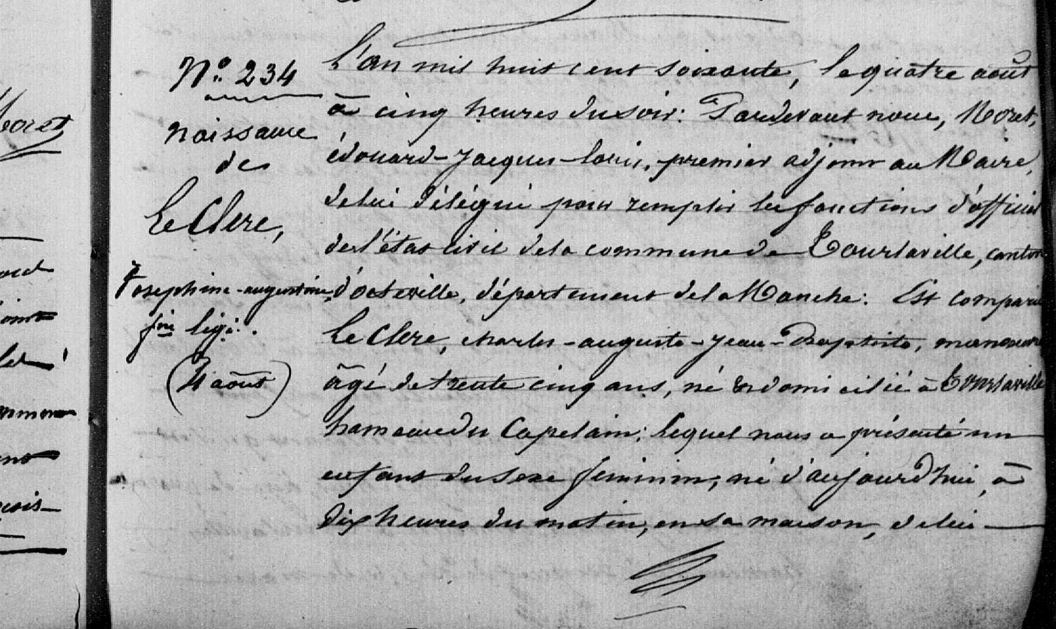 N.o 234
naissance
de
LeClerc,
Josephine-augustine,
fin légi.
(4 août)
L'an mil huit cent soixante, le quatre août
à cinq heures du soir: Pardevant nous, Noret,
édouard-Jacques-Louis, premier adjoint au Maire,
de lui délégué pour remplir les fonctions d'officier
de l'état civil de la commune de Tourlaville, canton
d'octeville, département de la Manche: Est comparu
LeClerc, charles-auguste-Jean-Baptiste, manoeuvre
âgé de trente cinq ans, né et domicilié à Tourlaville
hameau du Capelain; lequel nous a présenté un
enfant du sexe féminin, né d'aujourd'hui, à
dix heures du matin, en sa maison, de lui